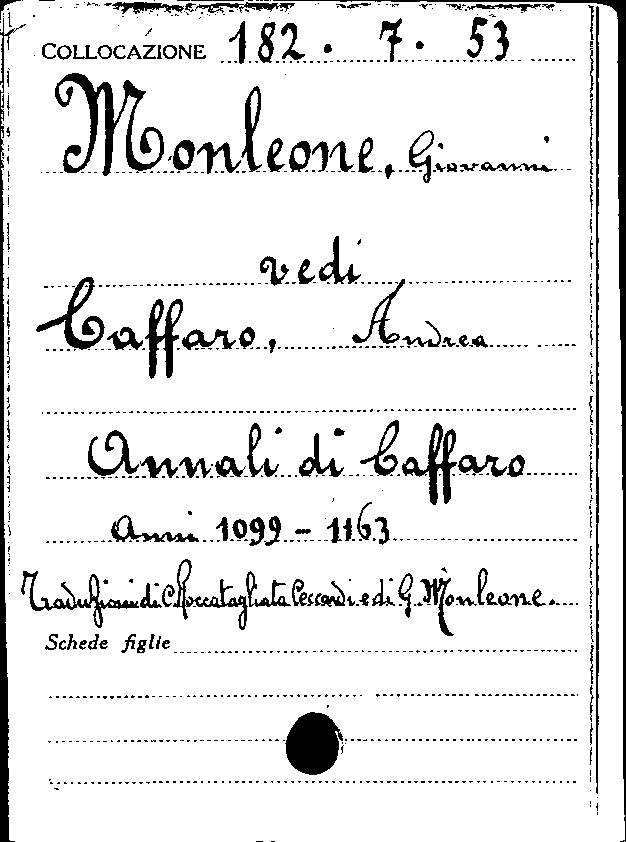 COLLOCAZIONE 182 . 7 . 53
Monleone, Giovanni
vedi
Caffaro, Andrea
Annali di Caffaro
Anni 1099 - 1163
Traduzioni di C. Roccatagliata Ceccardi e di G. Monleone.
Schede figlie